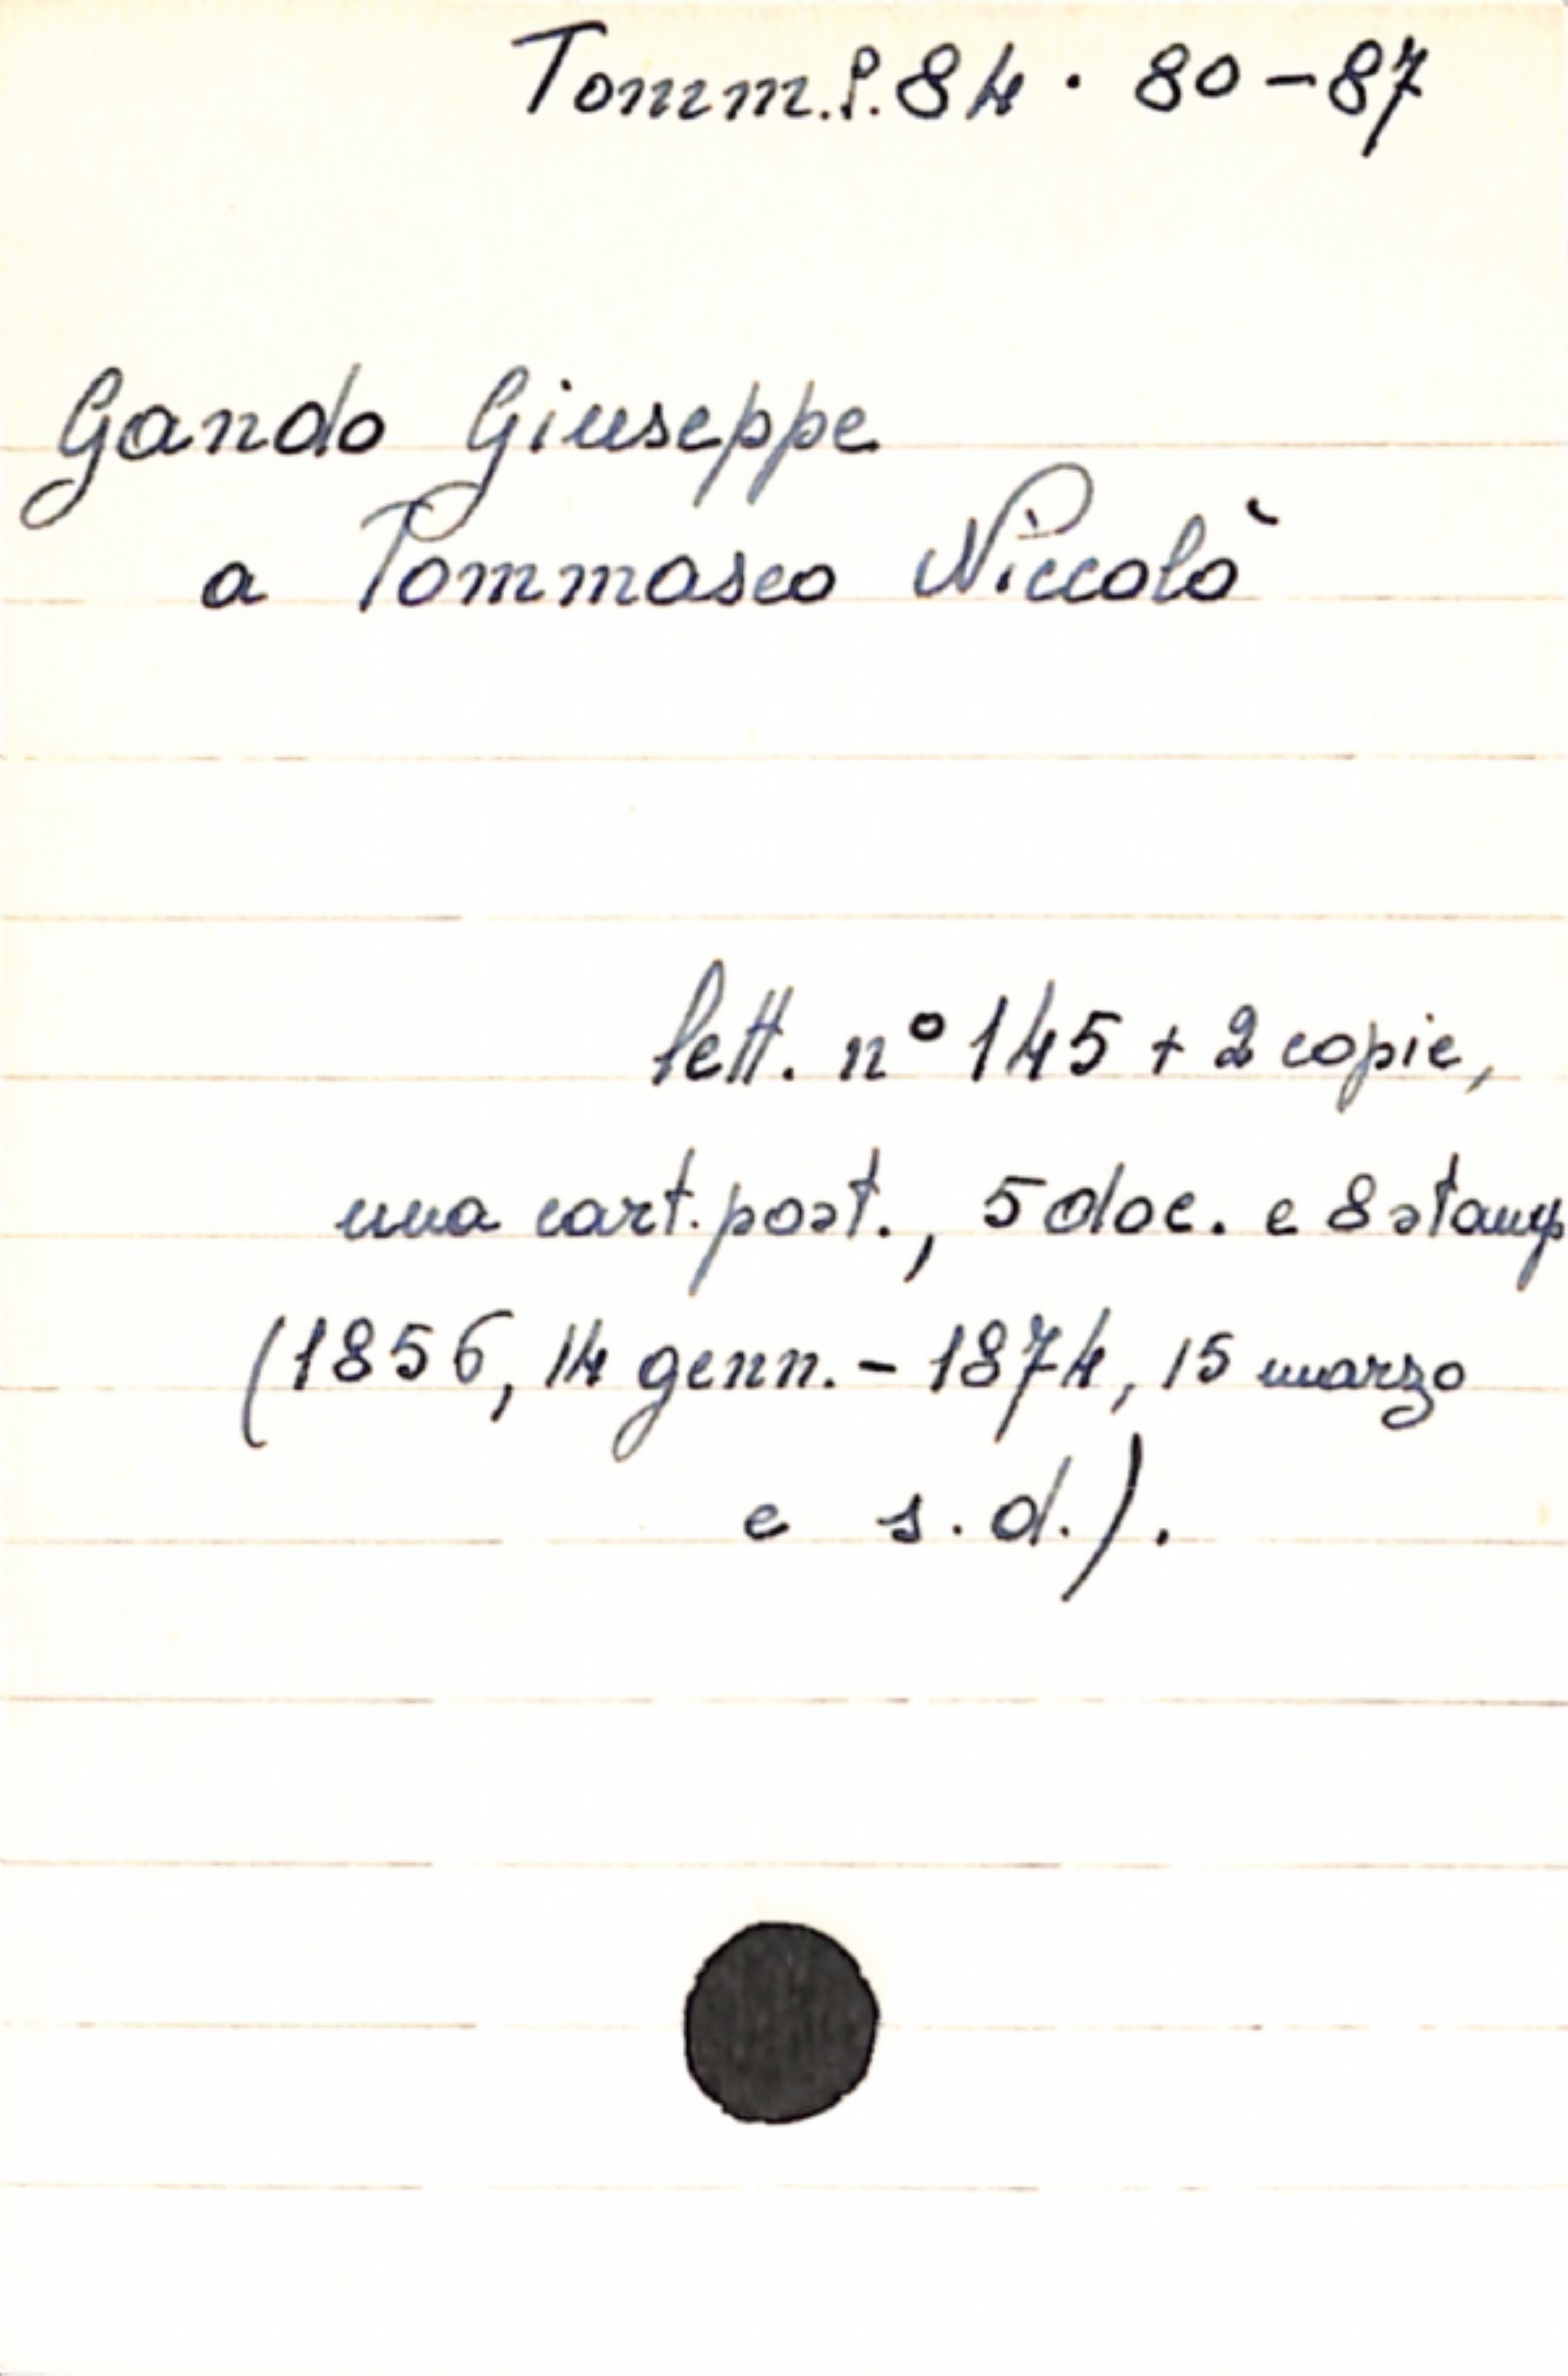 Tomm. P. 84 · 80-87
Gando Giuseppe
a Tommaseo Niccolò
lett. n° 145 + 2 copie,
una cart. post., 5 doc. e 8 stamp
(1856, 14 genn. - 1874, 15 marzo
e s.d.).